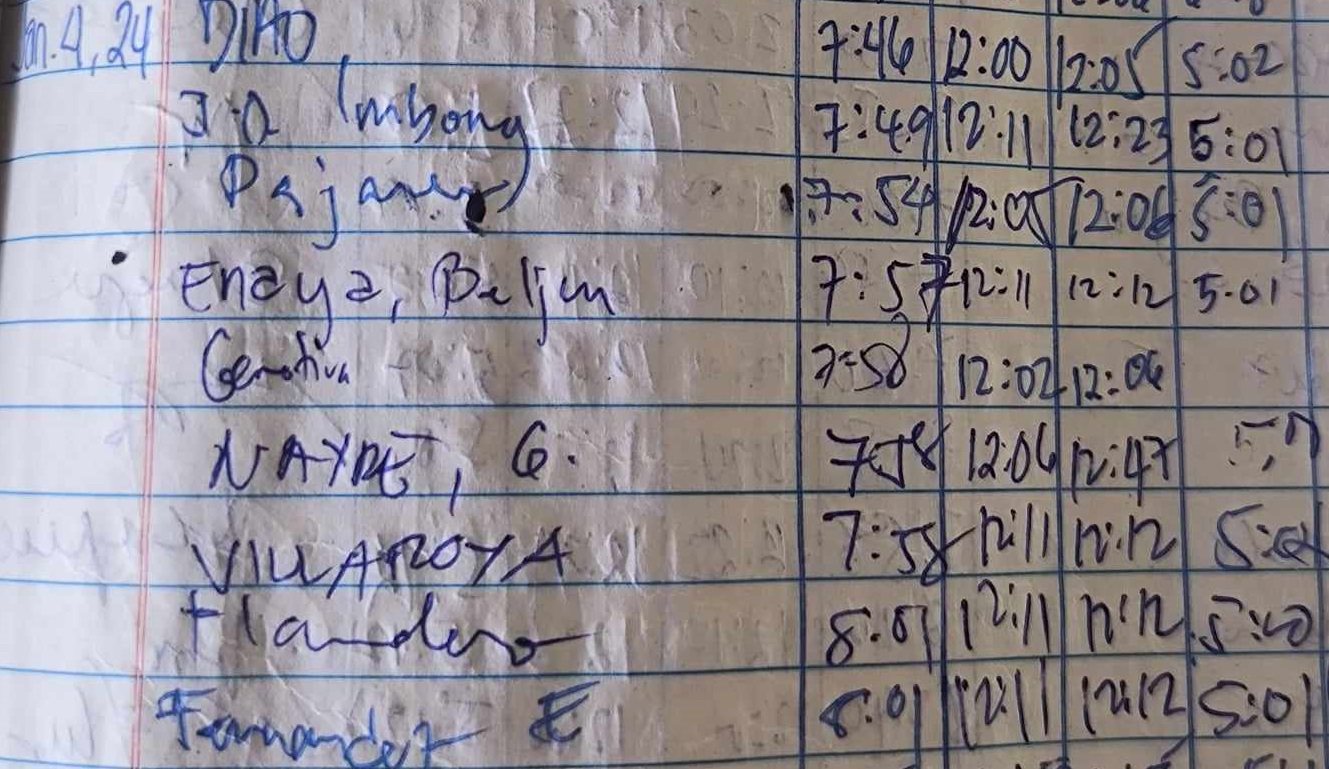 Jan. 4, 24 DIAO, 7:46 12:00 12:05 5:02
J.A Imbong 7:49 12:11 12:23 5:01
7:54 12:05 12:06 5:01
Enaya, Beljun 7:57 12:11 12:12 5.01
7:58 12:02 12:06
NAYRE, G. 7:58 12:06 12:47
VILLAROYA 7:58 12:11 12:12
Flandero 8:01 12:11 12:12
Fernandez E 8:01 12:11 12:12 5:01